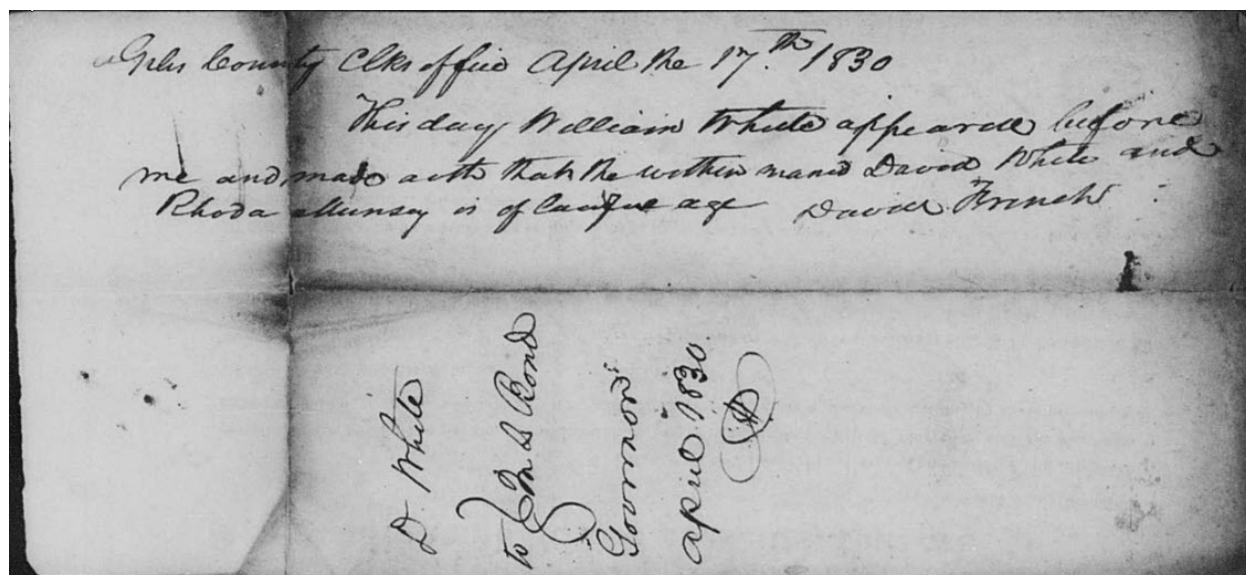 Giles County Clks office April the 17.th 1830
This day William White appeared before
me and made aoth that the within named David White and
Rhoda Munsey is of lawfue age David French
D. White
to M B Bond
Governor
april 1830